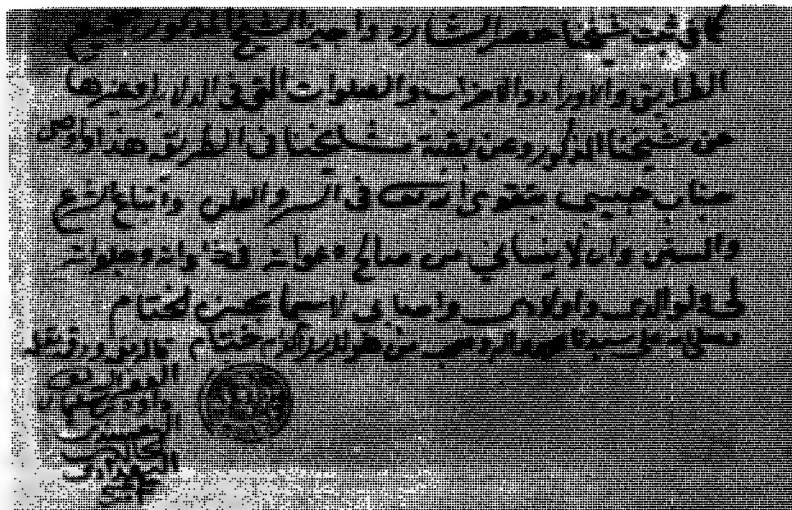 كما في ثبت شيخنا خضر الشاروا واجيز الشيخ المذكور بجميع
الطرايق والاوراد والاحزاب والصلوات التي في الدلايل وغيرها
عن شيخنا المذكور وعن بقية مشايخنا في الطريق هذا واوصي
جناب حبيبي بتقوى الله في السر والعلن واتباع الشرع
والسنن وان لا ينساني من صالح دعواته في خلواته وجلواته
لي ولوالدي واولادي واحبابي لاسيما بحسن الختام
وصلى الله على سيدنا محمد واله وصحبه ختام
قاله بفمه ورقمه بقلمه
الفقير اليه تعالى
داود بن سليمان
البغدادي
النقشبندي
الخالدي